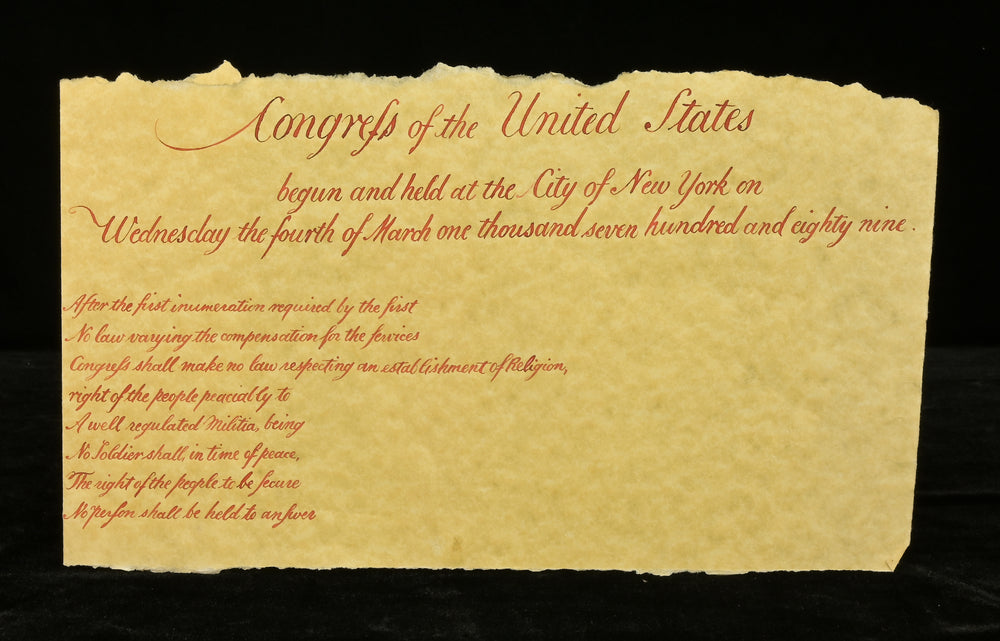 Congreſs of the United States
begun and held at the City of New York on
Wednesday the fourth of March one thousand seven hundred and eighty nine.
After the first inumeration required by the first
No law varying the compensation for the ſervices
Congreſs shall make no law respecting an establishment of Religion,
right of the people peacibly to
A well regulated Militia, being
No Soldier shall, in time of peace,
The right of the people to be ſecure
No perſon shall be held to anſwer